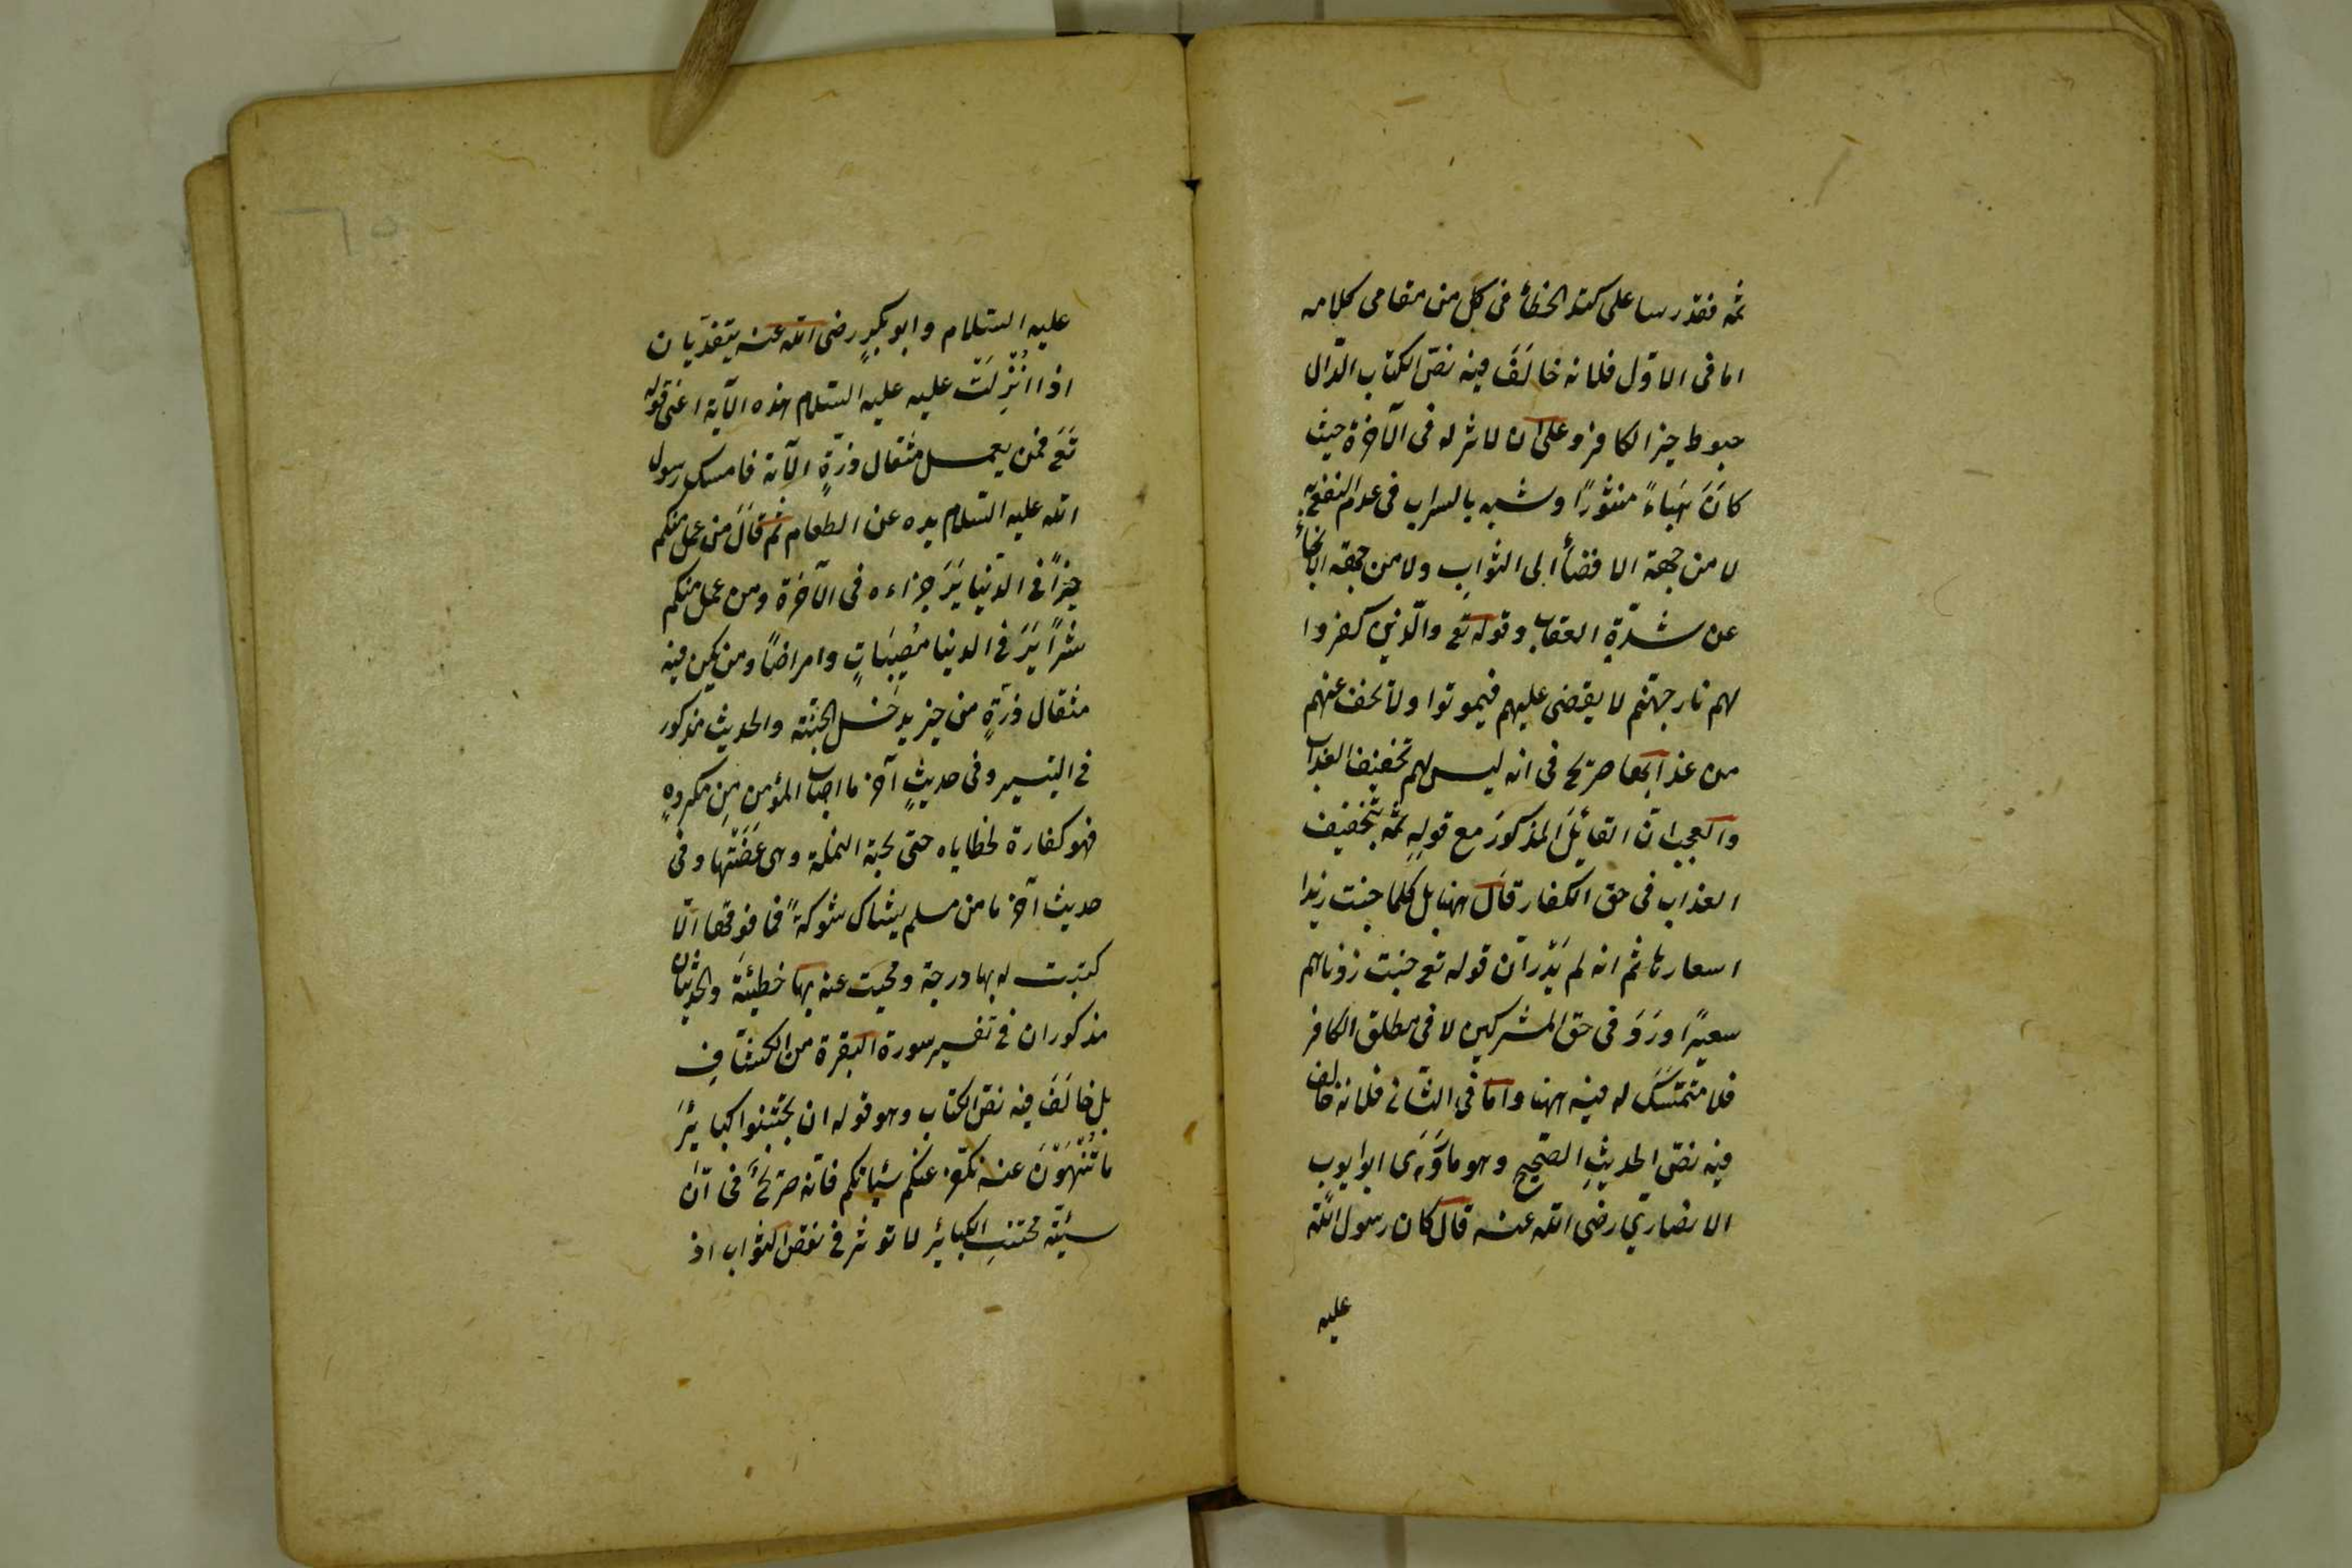 ثمه فقد رسا على كتد الخطأ فى كل من مقامى كلامه
اما فى الاوّل فلانه خالَفَ فيه نصّ الكتاب الدّال
حبوط خير الكافر وعلى ان لا اثر له فى الآخرة حيث
كانَ هَبَاءً منثورًا وشبه بالسراب فى عدم النفع به
لا من جهة الافضأ الى الثواب ولا من جهة الانجأ
عن شدّةِ العقاب وقوله تع والّذين كفروا
لهم نار جهنّم لا يقضى عليهم فيموتوا ولا يخفف عنهم
من عذابها صريح فى انه ليس لهم تخفيف العذاب
والعجب انّ القائلَ المذكورَ مع قولِهِ ثمّه بتخفيف
العذاب فى حق الكفار قال ههنا بل كلما خبت زيدا
اسعارها ثم انه لم يَدْرِ انّ قوله تع خبت زدناهم
سعيرًا ورَدَ فى حق المشركين لا فى مطلق الكافر
فلا متمسَّكَ له فيه ههنا واما فى الثّانى فلانه خالف
فيه نصّ الحديثِ الصّحيحِ وهو ما رَوَى ابو ايوب
الانصاريّ رضى الله عنه قال كان رسول الله
عليه
عليه السّلام وابو بكرٍ رضى الله عنه يتغدّيان
اذا اُنْزِلَتْ عليه عليه السّلام هذه الآية اعنى قوله
تَعَ فمن يعمل مثقال ذرّةٍ الآية فامسك رسول
الله عليه السّلام يده عن الطعام ثم قالَ من عمل منكم
خيرًا فى الدّنيا يَرَ جزاءه فى الآخرة ومن عمل منكم
شرًا يَرَ فى الدنيا مُصِيبَاتٍ وامراضًا ومن يكن فيه
مثقال ذرّةٍ من خير يدخل الجنّة والحديث مذكور
فى التيسير وفى حديثٍ آخر ما اصاب المؤمن مِن مكروهٍ
فهو كفارة لخطاياه حتى نخبة النملة وهى عَضّتها وفى
حديث آخر ما من مسلم يشاك شوكةً فما فوقها الّا
كتبت له بها درجة ومحيَت عنه بها خطيئة والحديثان
مذكوران فى تفسير سورة البقرة من الكشّافِ
بل خالَفَ فيه نصّ الكتاب وهو قوله ان تجتنبوا كبائِرَ
ما تُنْهَوْنَ عنه نكفّر عنكم سيّاتكم فانّه صريحٌ فى انّ
سيّئة مجتنبِ الكبائر لا تؤثر فى نقص الثواب اذ